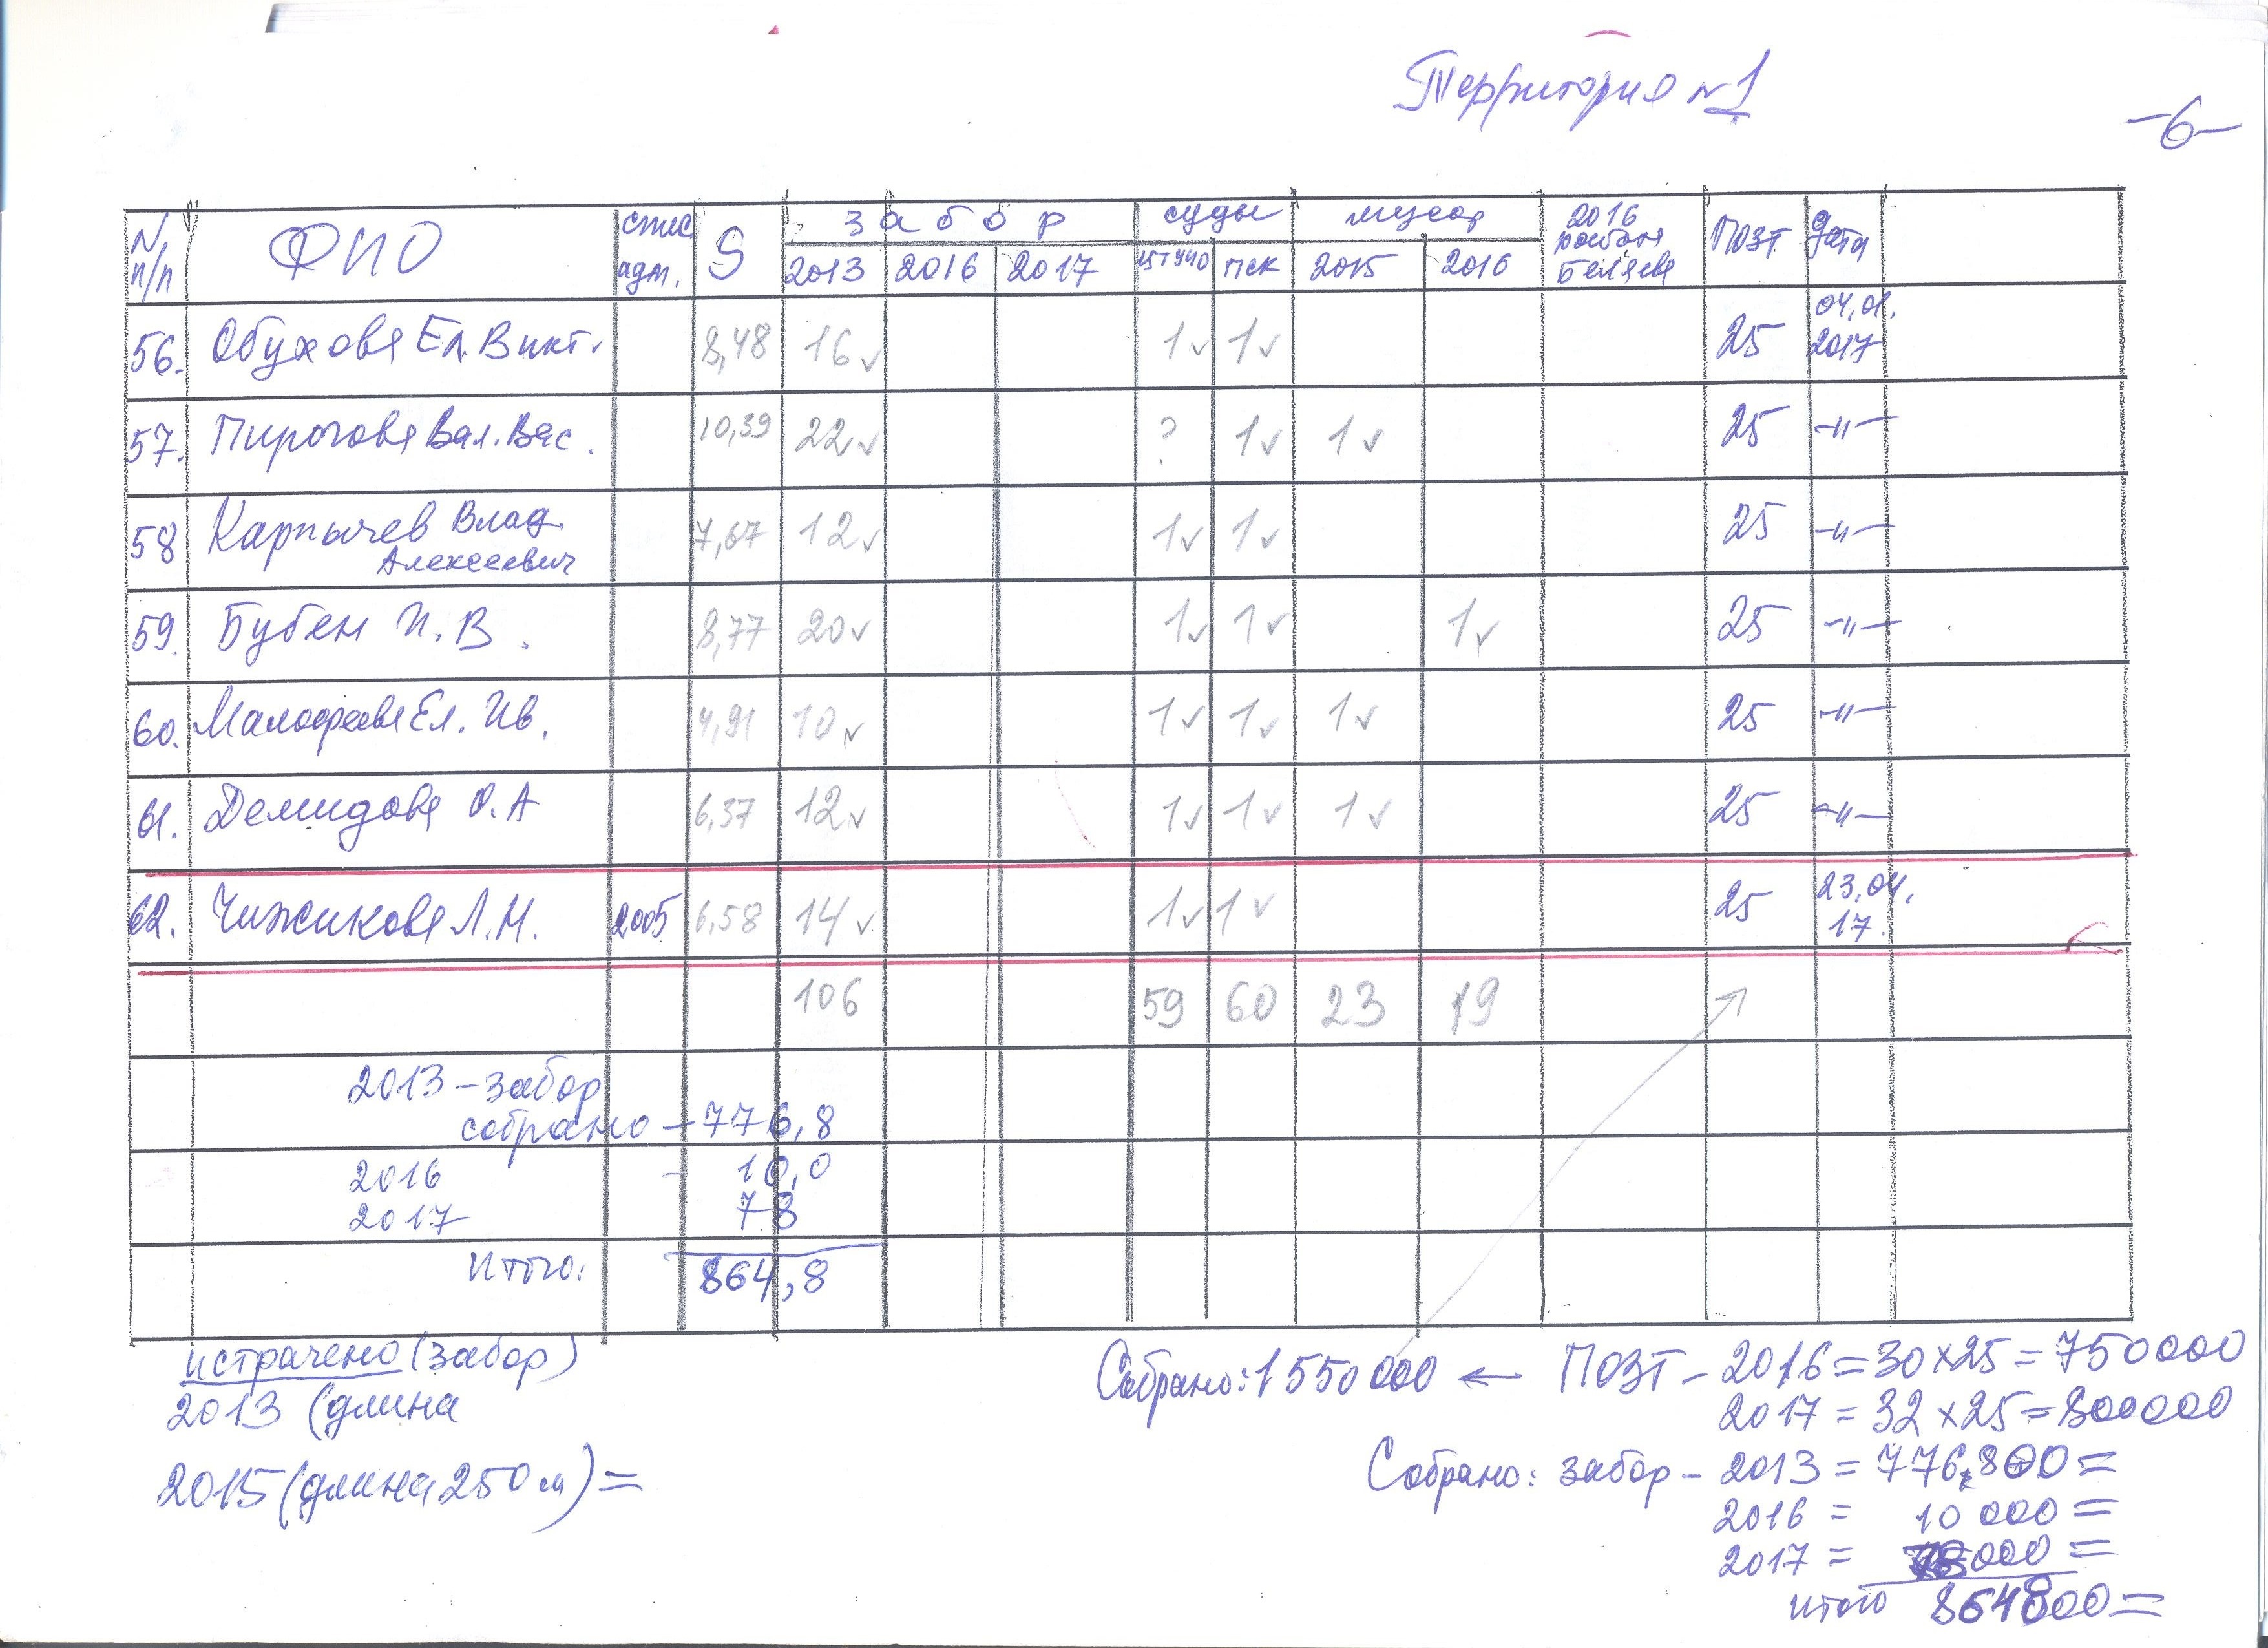 Территория №1
-6-
N п/п ФИО спис. адм. S забор суды мусор 2016 Беляева ПОЗТ Дата
2013 2016 2017 пск 2015 2016
56. Обухова Ел. Викт. 8,48 16✓ 1✓ 1✓ 25 04,01. 2017
57. Пирогова Вал. Вас. 10,39 22✓ ? 1✓ 1✓ 25 -"-
58 Карпычев Влад. Алексеевич 7,67 12✓ 1✓ 1✓ 25 -"-
59. Бубен И. В. 8,77 20✓ 1✓ 1✓ 1✓ 25 -"-
60. Малофеева Ел. Ив. 4,91 10✓ 1✓ 1✓ 1✓ 25 -"-
61. Демидова О. А 6,37 12✓ 1✓ 1✓ 1✓ 25 -"-
62. Чижикова Л. Н. 2005 6,58 14✓ 1✓ 1✓ 25 23,04. 17.
106 59 60 23 19
2013 - забор
собрано - 776,8
2016 - 10,0
2017 78
Итого: 864,8
истрачено (забор)
2013 (длина
2015 (длина 250 м) =
Собрано: 1550000 ← ПОЗТ - 2016 = 30×25 = 750000
2017 = 32×25 = 800000
Собрано: забор - 2013 = 776,800=
2016 = 10 000=
2017 = 78000=
итого 864800=